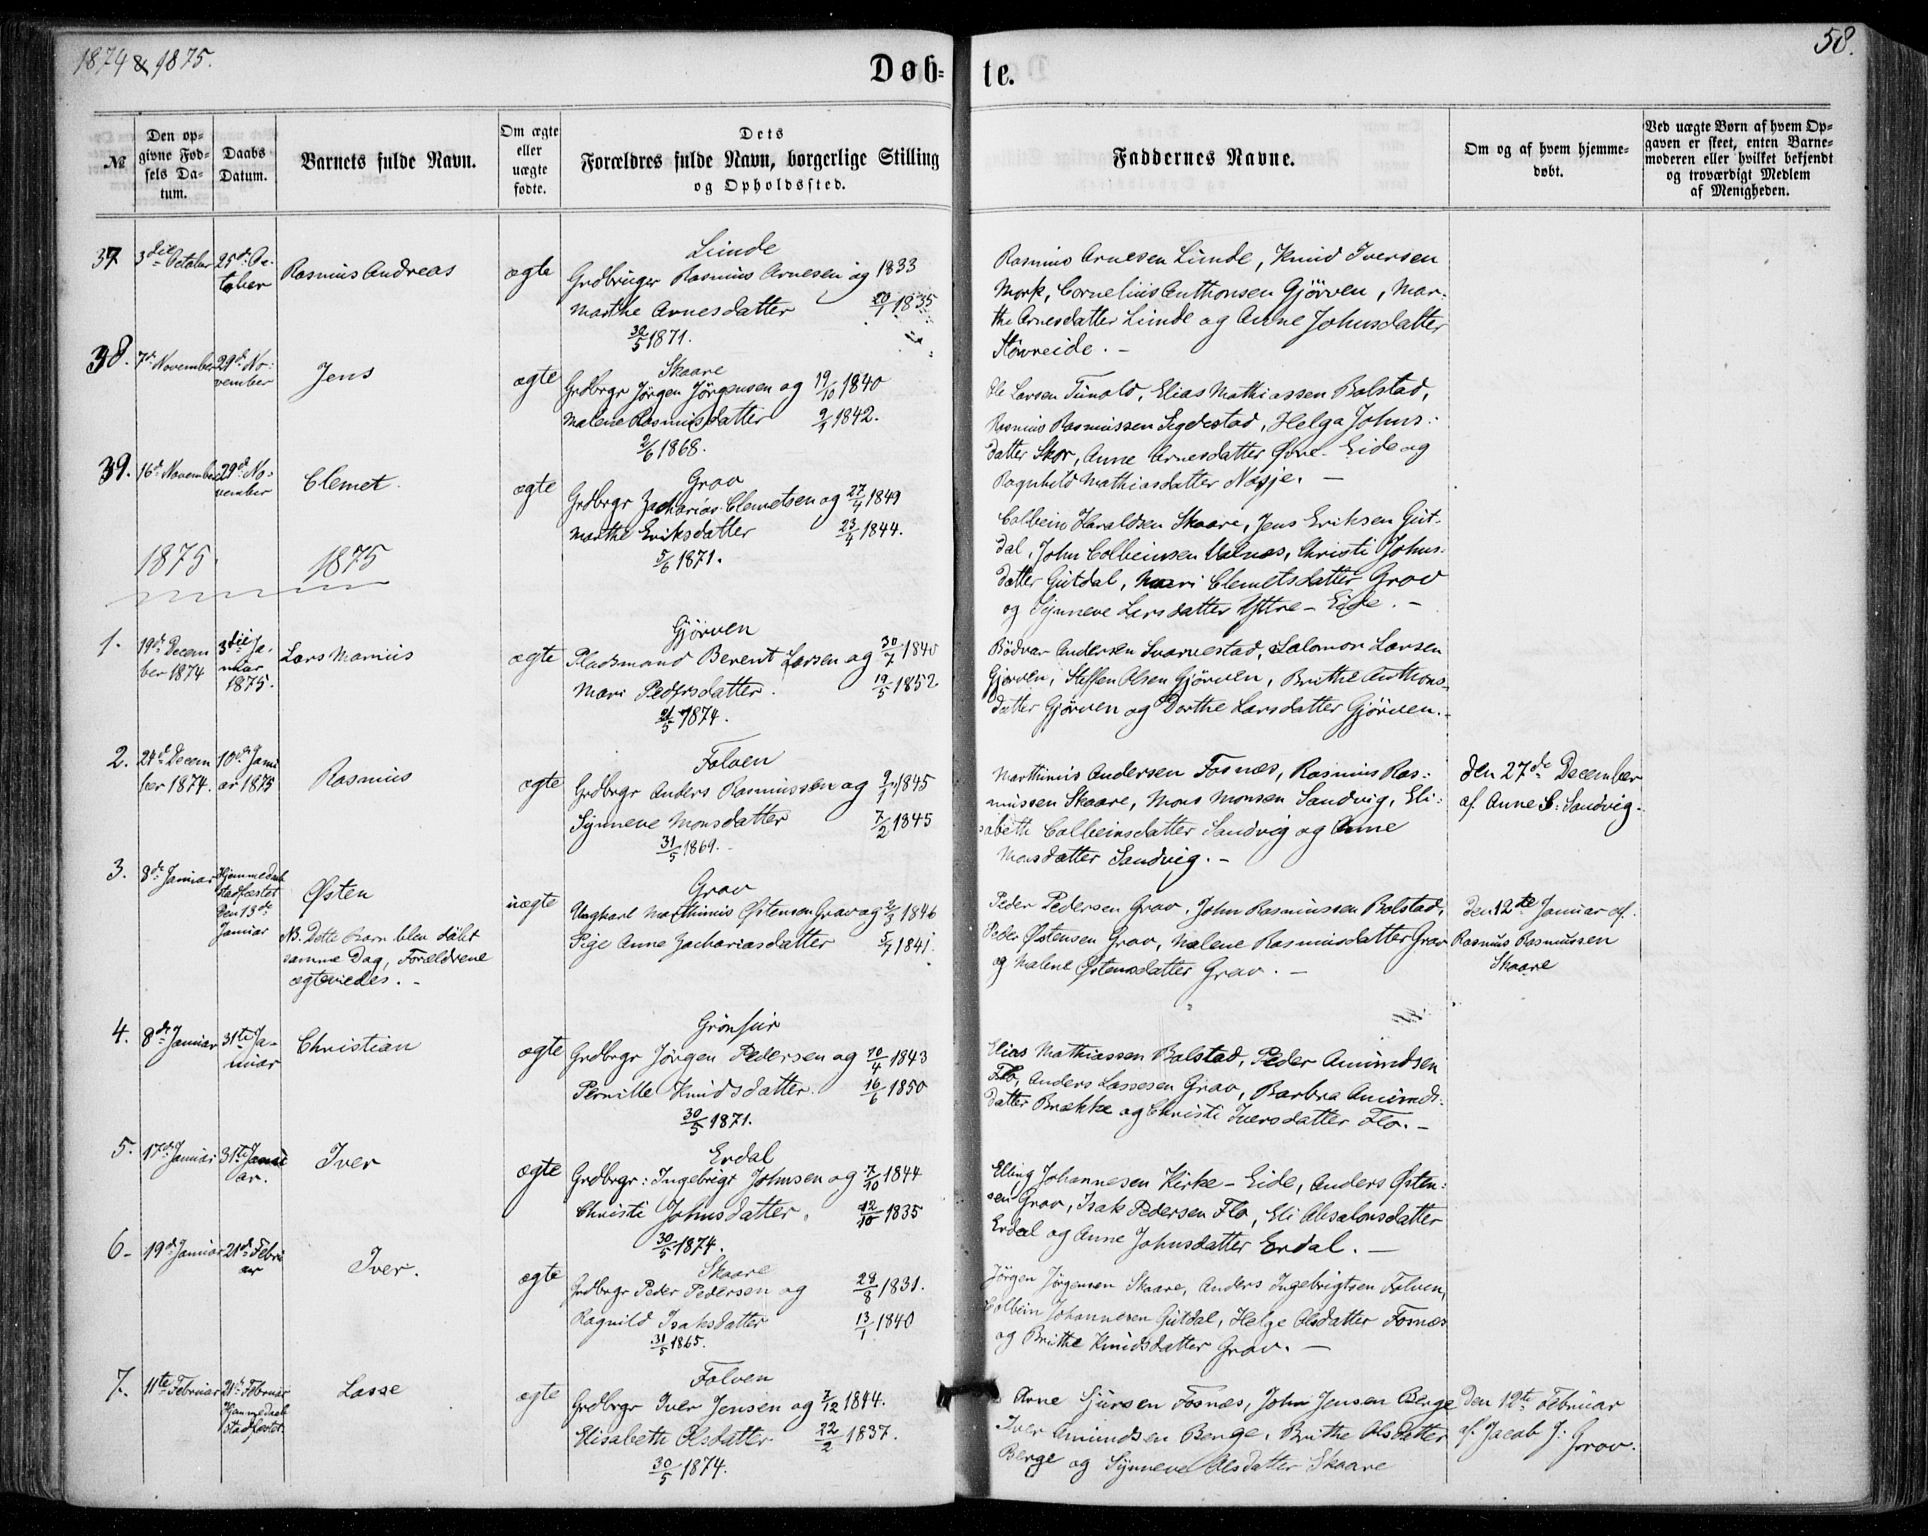 1874 & 1875.
58.
Døb=te.
№
Den opgivne Fødsels Datum.
Daabs Datum.
Barnets fulde Navn.
Om ægte eller uægte fødte.
Dets Forældres fulde Navn, borgerlige Stilling og Opholdssted.
Faddernes Navne.
Om og af hvem hjemmedøbt.
Ved uægte Børn af hvem Opgaven er skeet, enten Barnemoderen eller hvilket bekjendt og troværdigt Medlem af Menigheden.
37 3die October 25de October Rasmus Andreas ægte
Lunde
Grdbruger Rasmus Arnesen og 1833
Marthe Arnesdatter 20/7 1835
30/5 1871.
Rasmus Arnesen Lunde, Knud Iversen
Mork, Cornelius Anthonsen Gjörven, Mar-
the Arnesdatter Lunde og Anne Johnsdatter
Störreide. -
38. 7de November 29de November Jens ægte
Skaare
Grdbrgr Jörgen Jörgensen og 19/10 1840
Malene Rasmusdatter 9/1 1842.
2/6 1868.
Ole Larsen Tunold, Elias Mathiassen Bolstad,
Rasmus Rasmussen Segdestad, Helga Johns-
datter Skor, Anne Arnesdatter Øvre-Eide og
Ragnhild Mathiasdatter Nosje. -
39. 16de November 29de November Clemet. ægte
Grov
Grdbrgr Zacharias Clemetsen og 27/4 1849
Marthe Eriksdatter 23/4 1844.
5/6 1871.
Colbein Haraldsen Skaare, Jens Eriksen Gut-
dal, John Colbeinsen Valnes, Christi Johns-
datter Gutdal, Mari Clemetsdatter Grov
og Synneve Larsdatter Yttre-Eide. -
1875. 1875
1. 19de December 1874 3die Januar 1875. Lars Marius ægte
Gjörven
Pladsmand Berent Larsen og 30/7 1840
Mari Pedersdatter. 19/5 1852
21/5 1874.
Bödvar Andersen Svarvestad, Salomon Larsen
Gjörven, Steffen Olsen Gjörven, Brithe Anthons-
datter Gjörven og Dorthe Larsdatter Gjörven. -
2. 24de December 1874. 10de Januar 1875 Rasmus ægte
Folven
Grdbrgr Anders Rasmussen og 9/1 1845
Synneve Monsdatter 7/2 1845
31/5 1869.
Marthinus Andersen Fosnæs, Rasmus Ras-
mussen Skaare, Mons Monsen Sandvig, Eli-
sabeth Colbeinsdatter Sandvig og Anne
Monsdatter Sandvig. -
den 27de December
af Anne S. Sandvig.
3. 8de Januar Hjemmedaab stadfæstet den 13de Januar Østen uægte
NB. Dette Barn blev döbt
samme Dag, Forældrene
ægteviedes. -
Grov
Ungkarl Marthinus Østensen Grov og 2/3 1846
Pige Anne Zachariasdatter 5/7 1841.
Peder Pedersen Grov, John Rasmussen Bolstad,
Peder Østensen Grov, Malene Rasmusdatter Grov
og Malene Østensdatter Grov. -
den 12te Januar af
Rasmus Rasmussen
Skaare
4. 8de Januar 31te Januar Christian ægte
Grönfur
Grdbrgr Jörgen Pedersen og 20/4 1843
Pernille Knudsdatter. 16/6 1850
30/5 1871.
Elias Mathiassen Bolstad, Peder Amundsen
Flo, Anders Lassesen Grov, Barbra Amunds-
datter Brække og Christi Iversdatter Flo. -
5. 17de Januar 31te Januar. Iver ægte
Erdal
Grdbrgr: Ingebrigt Johnsen og 7/10 1844
Christi Johnsdatter. 12/10 1835
30/5 1874.
Elling Johannesen Kirke-Eide, Anders Østen-
sen Grov, Isak Pedersen Flo, Eli Absalonsdatter
Erdal og Anne Johnsdatter Erdal. -
6- 19de Januar 21de Februar Iver. ægte
Skaare
Grdbrgr Peder Pedersen og 28/8 1831.
Ragnild Isaksdatter 13/1 1840
31/5 1865.
Jörgen Jörgensen Skaare, Anders Ingebrigtsen Folven,
Colbein Johannesen Gutdal, Helge Olsdatter Fosnæs
og Brithe Knudsdatter Grov. -
7. 11te Februar 21de Februar Hjemmedaab stadfæstet. Lasse ægte
Folven
Grdbrgr Iver Jensen og 7/12 1844.
Elisabeth Olsdatter 22/2 1837.
30/5 1874.
Arne Sjursen Fosnæs, John Jensen Berge
Iver Amundsen Berge, Brithe Olsdatter
Berge og Synneve Olsdatter Skaare
den 12te Februar
af Jacob J. Grov.